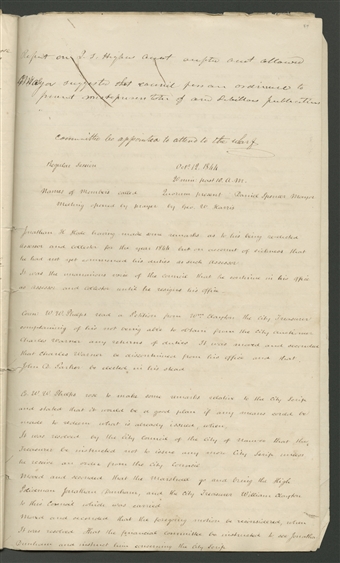 Report on I. S. Higbee's acct accepted and allowed
Mayor suggested that council pass an ordinance to
prevent misrepresentation of and libellous publications
Committee be appointed to attend to the wharf
Regular Session Oct 12, 1844
10 A. M.
Names of Members called Quorum present Daniel Spencer Mayor
Meeting opened by prayer by Geo. W. Harris
Jonathan H. Hale having made some remarks as to his being
assessor and collector for the year 1844 but on account of sickness that
he had not yet commenced his duties as such assessor
It was the unanimous voice of the council that he continue in his office
as assessor and collector until he resigns his office
Coun. W. W. Phelps read a Petition from Wm Clayton the City Treasurer
complaining of his not being able to obtain from the City Auctioneer
Charles Warner any returns of duties. It was moved and seconded
that Charles Warner be discontinued from his office and that
John D. Parker be elected in his stead
W. W. Phelps rose to make some remarks relative to the City Scrip
and stated that it would be a good plan if any means could be
made to discern what is already issued, when,
It was resolved by the City Council of the City of Nauvoo that the
Treasurer be instructed not to issue any more City Scrip unless
he receive an order from the City Council
Moved and seconded that the Marshal go and bring the
Jonathan Dunham, and the City Treasurer William Clayton
to this Council which was carried
Moved and seconded that the foregoing motion be reconsidered, when
it was resolved that the financial committee be instructed to see Jonathan
Dunham and instruct him concerning the City Scrip